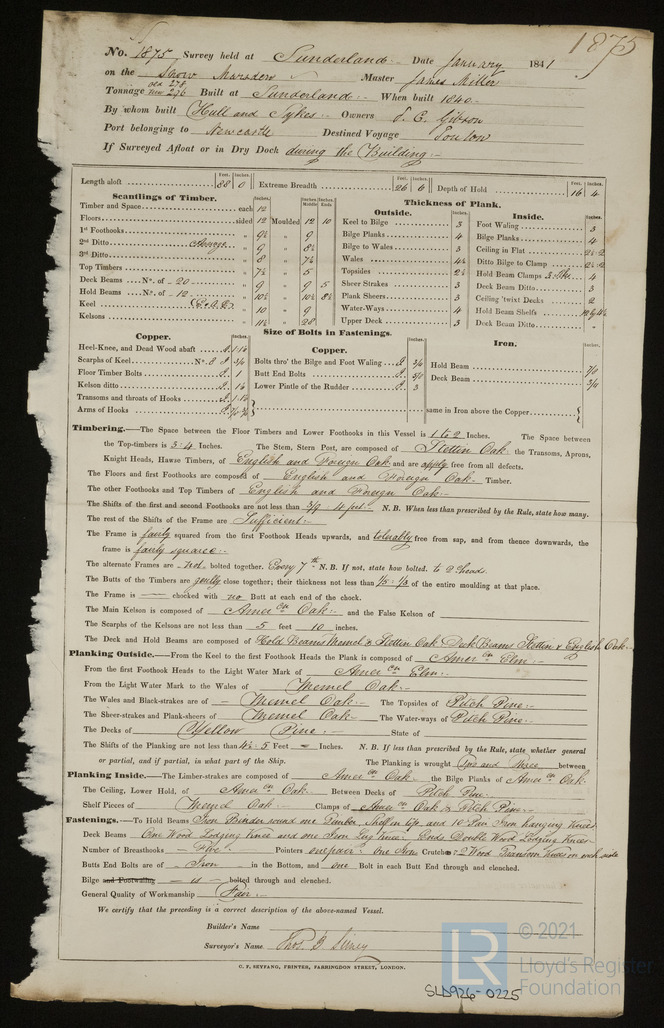 1875
No. 1875 Survey held at Sunderland Date January 1841
on the Snow Marsden Master James Miller
Tonnage old 278 new 296 Built at Sunderland When built 1840
By whom built Hull and Sykes Owners T. E. Gibson
Port belonging to Newcastle Destined Voyage Toulon
If Surveyed Afloat or in Dry Dock during the Building
Length aloft Feet. 88 Inches. 0 Extreme Breadth Feet. 26 Inches. 6 Depth of Hold Feet. 16 Inches. 4
Scantlings of Timber. Inches. Inches. Middle Inches. Ends
Timber and Space each 12
Floors sided 12 Moulded 12 10
1st Foothooks 9½ " 9
2nd Ditto Average 9 " 8½
3rd Ditto 8 " 7½
Top Timbers 7½ " 5
Deck Beams No. of 20 " 9 " 9 5
Hold Beams No. of 12 " 10½ " 10½ 8½
Keel 10 " 9
Kelsons " 11½ " 20
Thickness of Plank.
Outside. Inches.
Keel to Bilge 3
Bilge Planks 4
Bilge to Wales 3
Wales 4½
Topsides 2½
Sheer Strakes 3
Plank Sheers 3
Water-Ways 4
Upper Deck 3
Inside. Inches.
Foot Waling 3
Bilge Planks 4
Ceiling in Flat 2½-2
Ditto Bilge to Clamp 2½-2
Hold Beam Clamps 4
Deck Beam Ditto 3
Ceiling 'twixt Decks 2
Hold Beam Shelfs
Deck Beam Ditto "
Size of Bolts in Fastenings.
Copper. Inches.
Heel-Knee, and Dead Wood abaft
Scarphs of Keel No. 8
Floor Timber Bolts 1
Kelson ditto
Transoms and throats of Hooks
Arms of Hooks
Copper. Inches.
Bolts thro' the Bilge and Foot Waling
Butt End Bolts
Lower Pintle of the Rudder 3
Iron. Inches.
Hold Beam
Deck Beam
same in Iron above the Copper
Timbering.—The Space between the Floor Timbers and Lower Foothooks in this Vessel is 1 to 2 Inches. The Space between
the Top-timbers is 3:4 Inches. The Stem, Stern Post, are composed of Stettin Oak the Transoms, Aprons,
Knight Heads, Hawse Timbers, of English and Foreign Oak and are apply free from all defects.
The Floors and first Foothooks are composed of English and Foreign Oak Timber.
The other Foothooks and Top Timbers of English and Foreign Oak
The Shifts of the first and second Foothooks are not less than 3/9 : 4 feet N. B. When less than prescribed by the Rule, state how many.
The rest of the Shifts of the Frame are Sufficient
The Frame is fairly squared from the first Foothook Heads upwards, and tolerably free from sap, and from thence downwards, the
frame is fairly squared
The alternate Frames are not bolted together. Every 7th N. B. If not, state how bolted. to 2 heads.
The Butts of the Timbers are genlly close together; their thickness not less than 1/5 : 1/3 of the entire moulding at that place.
The Frame is — chocked with no Butt at each end of the chock.
The Main Kelson is composed of Amercn Oak and the False Kelson of
The Scarphs of the Kelsons are not less than 5 feet 10 inches.
The Deck and Hold Beams are composed of Hold Beams Memel & Stettin Oak: Deck Beams Stettin & English Oak
Planking Outside.—From the Keel to the first Foothook Heads the Plank is composed of Amercn Elm
From the first Foothook Heads to the Light Water Mark of Amercn Elm
From the Light Water Mark to the Wales of Memel Oak
The Wales and Black-strakes are of Memel Oak The Topsides of Pitch Pine
The Sheer-strakes and Plank-sheers of Memel Oak The Water-ways of Pitch Pine
The Decks of Yellow Pine State of
The Shifts of the Planking are not less than 4½ : 5 Feet — Inches. N. B. If less than prescribed by the Rule, state whether general
or partial, and if partial, in what part of the Ship. The Planking is wrought two and three between
Planking Inside.—The Limber-strakes are composed of Amercn Oak the Bilge Planks of Amercn Oak
The Ceiling, Lower Hold, of Amercn Oak Between Decks of Pitch Pine
Shelf Pieces of Memel Oak Clamps of Amercn Oak & Pitch Pine
Fastenings.—To Hold Beams Iron Binder round one Timber, Shelf in top and 10 Pair Iron hanging Knees
Deck Beams One Wood Lodging Knee and one Iron Leg Knee Ends Double Wood Lodging Knees
Number of Breasthooks Five Pointers one pair : one Iron Crutches: 2 Wood Transom Knees on each side
Butts End Bolts are of Iron in the Bottom, and one Bolt in each Butt End through and clenched.
Bilge and Footwaling — is — bolted through and clenched.
General Quality of Workmanship Fair
We certify that the preceding is a correct description of the above-named Vessel.
Builder's Name
Surveyor's Name Thos. B. Simey
C. F. SEYFANG, PRINTER, FARRINGDON STREET, LONDON.
LR © 2021
Lloyd's Register
Foundation
SLD926-0225